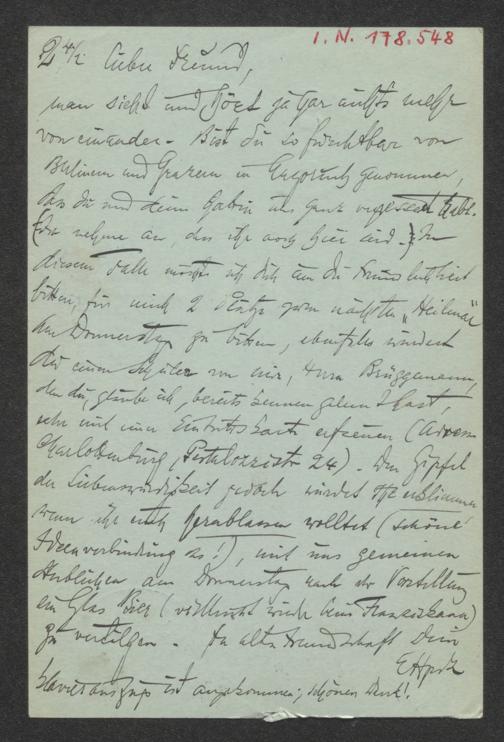 I. N. 178.548
4/2 Lieber Freund,
man sieht und hört ja gar nichts mehr
von einander. Bist du so furchtbar von
Berlinern und Grazern in Anspruch genommen,
dass du und deine Gattin uns ganz vergessen habt.
(Ich nehme an, dass ihr noch hier seid.) In
diesem Falle möchte ich dich um die Freundlichkeit
bitten, für mich 2 Plätze zum nächsten „Heilmar"
am Donnerstag zu bitten, ebenfalls würdest
du einen Schüler von mir, Herrn Brüggemann,
den du, glaube ich, bereits kennen gelernt hast,
sehr mit einer Eintrittskarte erfreuen (Adresse
Charlottenburg, Pestalozzistr 24). Den Gipfel
der Liebenswürdigkeit jedoch würdet Ihr erklimmen
wenn ihr euch herablassen wolltet (schöne
Ideenverbindung das!), mit uns gemeinen
Sterblichen am Donnerstag nach der Vorstellung
ein Glas Bier (vielleicht wieder beim Franziskaner)
zu vertilgen. In alter Freundschaft Dein
Klavierauszug ist angekommen; schönen Dank!